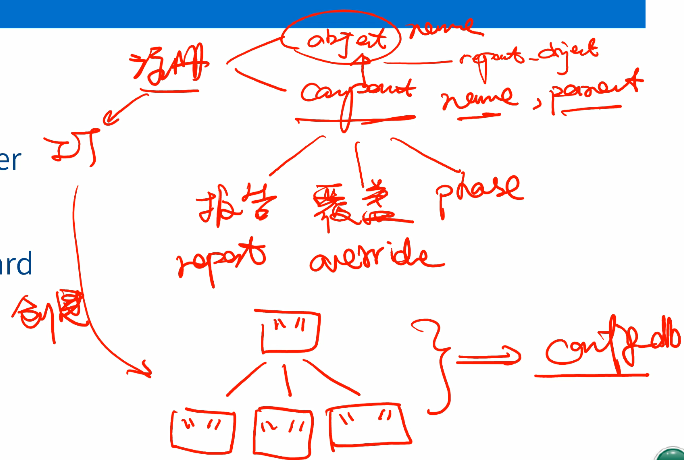 object name
注册
report_object
component name, parent
er 工厂
报告 覆盖 phase
ard report override
创建
" "
config db
" " " " " "